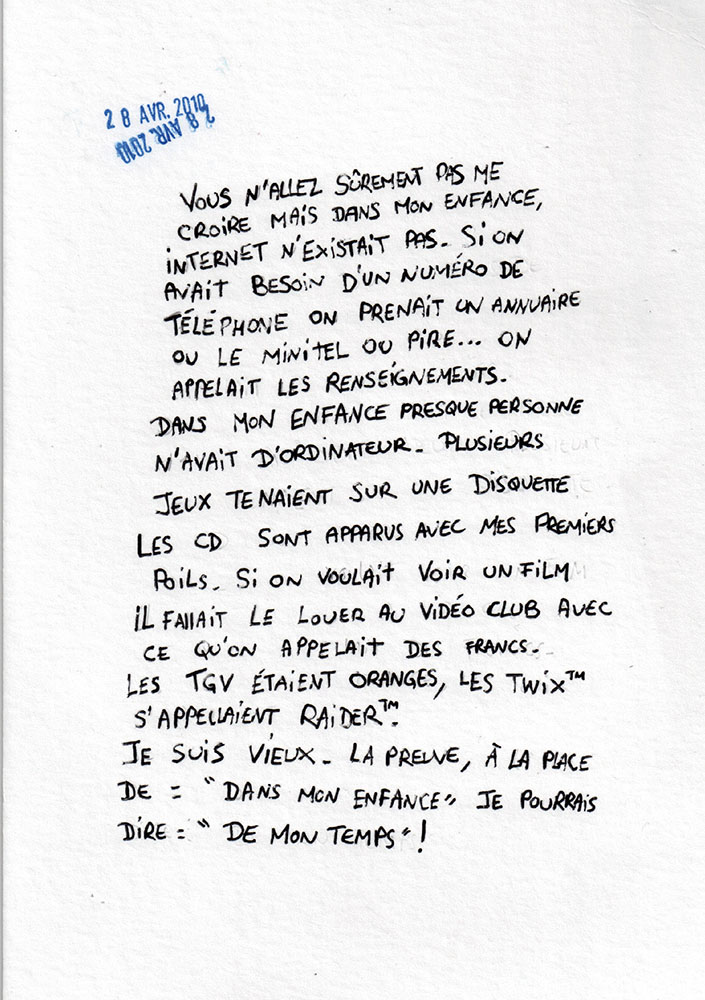 28 AVR. 2010
28 AVR. 2010
VOUS N'ALLEZ SÛREMENT PAS ME
CROIRE MAIS DANS MON ENFANCE,
INTERNET N'EXISTAIT PAS. SI ON
AVAIT BESOIN D'UN NUMÉRO DE
TÉLÉPHONE ON PRENAIT UN ANNUAIRE
OU LE MINITEL OU PIRE... ON
APPELAIT LES RENSEIGNEMENTS.
DANS MON ENFANCE PRESQUE PERSONNE
N'AVAIT D'ORDINATEUR. PLUSIEURS
JEUX TENAIENT SUR UNE DISQUETTE
LES CD SONT APPARUS AVEC MES PREMIERS
POILS. SI ON VOULAIT VOIR UN FILM
IL FALLAIT LE LOUER AU VIDÉO CLUB AVEC
CE QU'ON APPELAIT DES FRANCS.
LES TGV ÉTAIENT ORANGES, LES TWIX™
S'APPELLAIENT RAIDER™.
JE SUIS VIEUX. LA PREUVE, À LA PLACE
DE : "DANS MON ENFANCE" JE POURRAIS
DIRE : "DE MON TEMPS" !